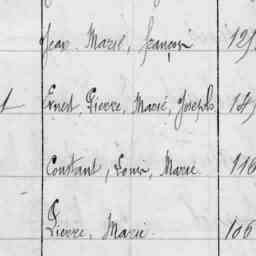 Jean Marie, françois
Ernest, Pierre, Marie, Joseph
Constant, Louis, Marie
Pierre, Marie